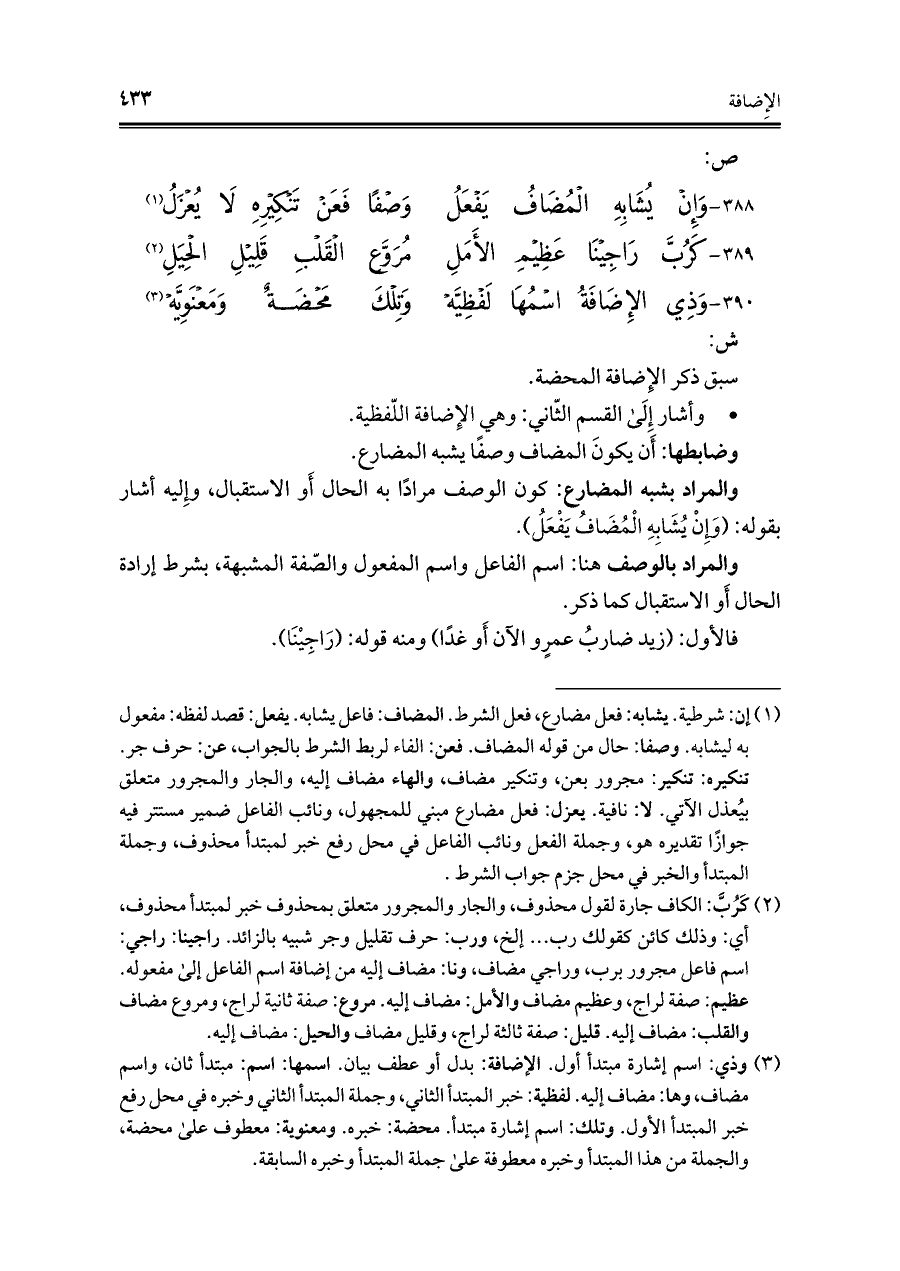 الإِضافة ٤٣٣
ص:
٣٨٨-وَإِنْ يُشَابِهِ الْمُضَافُ يَفْعَلُ وَصْفًا فَعَنْ تَنْكِيْرِهِ لَا يُعْزَلُ(١)
٣٨٩-كَرُبَّ رَاجِيْنَا عَظِيْمِ الأَمَلِ مُرَوَّعِ الْقَلْبِ قَلِيْلِ الْحِيَلِ(٢)
٣٩٠-وَذِي الإِضَافَةُ اسْمُهَا لَفْظِيَّهْ وَتِلْكَ مَحْضَــةٌ وَمَعْنَوِيَّهْ(٣)
ش:
سبق ذكر الإِضافة المحضة.
• وأشار إِلَىٰ القسم الثّاني: وهي الإِضافة اللّفظية.
وضابطها: أَن يكونَ المضاف وصفًا يشبه المضارع.
والمراد بشبه المضارع: كون الوصف مرادًا به الحال أَو الاستقبال، وإِليه أشار
بقوله: (وَإِنْ يُشَابِهِ الْمُضَافُ يَفْعَلُ).
والمراد بالوصف هنا: اسم الفاعل واسم المفعول والصّفة المشبهة، بشرط إرادة
الحال أَو الاستقبال كما ذكر.
فالأول: (زيد ضاربُ عمرٍو الآن أَو غدًا) ومنه قوله: (رَاجِيْنَا).
(١) إن: شرطية. يشابه: فعل مضارع، فعل الشرط. المضاف: فاعل يشابه. يفعل: قصد لفظه: مفعول
به ليشابه. وصفا: حال من قوله المضاف. فعن: الفاء لربط الشرط بالجواب، عن: حرف جر.
تنكيره: تنكير: مجرور بعن، وتنكير مضاف، والهاء مضاف إليه، والجار والمجرور متعلق
بيُعذل الآتي. لا: نافية. يعزل: فعل مضارع مبني للمجهول، ونائب الفاعل ضمير مستتر فيه
جوازًا تقديره هو، وجملة الفعل ونائب الفاعل في محل رفع خبر لمبتدأ محذوف، وجملة
المبتدأ والخبر في محل جزم جواب الشرط .
(٢) كَرُبَّ: الكاف جارة لقول محذوف، والجار والمجرور متعلق بمحذوف خبر لمبتدأ محذوف،
أي: وذلك كائن كقولك رب... إلخ، ورب: حرف تقليل وجر شبيه بالزائد. راجينا: راجي:
اسم فاعل مجرور برب، وراجي مضاف، ونا: مضاف إليه من إضافة اسم الفاعل إلىٰ مفعوله.
عظيم: صفة لراج، وعظيم مضاف والأمل: مضاف إليه. مروع: صفة ثانية لراج، ومروع مضاف
والقلب: مضاف إليه. قليل: صفة ثالثة لراج، وقليل مضاف والحيل: مضاف إليه.
(٣) وذي: اسم إشارة مبتدأ أول. الإضافة: بدل أو عطف بيان. اسمها: اسم: مبتدأ ثان، واسم
مضاف، وها: مضاف إليه. لفظية: خبر المبتدأ الثاني، وجملة المبتدأ الثاني وخبره في محل رفع
خبر المبتدأ الأول. وتلك: اسم إشارة مبتدأ. محضة: خبره. ومعنوية: معطوف علىٰ محضة،
والجملة من هذا المبتدأ وخبره معطوفة علىٰ جملة المبتدأ وخبره السابقة.